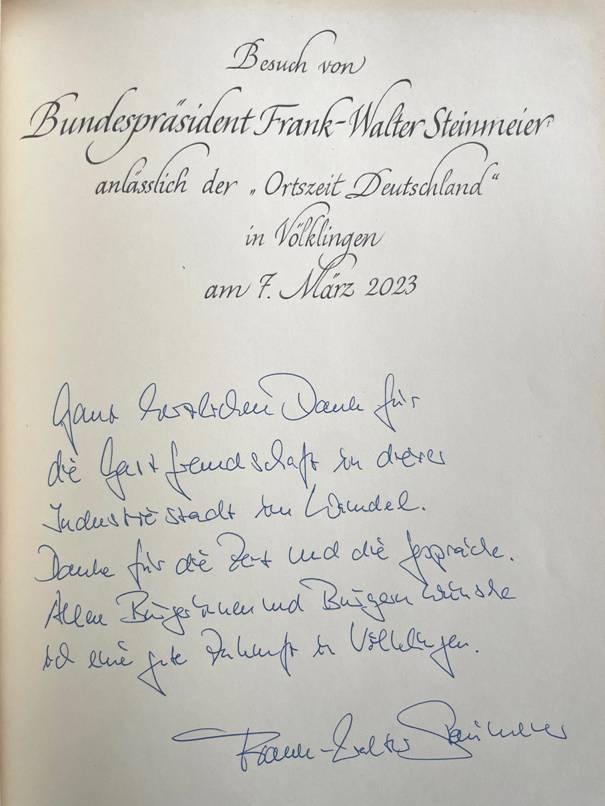 Besuch von
Bundespräsident Frank-Walter Steinmeier
anlässlich der „Ortszeit Deutschland“
in Völklingen
am 7. März 2023
Ganz herzlichen Dank für
die Gastfreundschaft in dieser
Industriestadt im Wandel.
Danke für die Zeit und die Gespräche.
Allen Bürgerinnen und Bürgern wünsche
ich eine gute Zukunft in Völklingen.
Frank-Walter Steinmeier